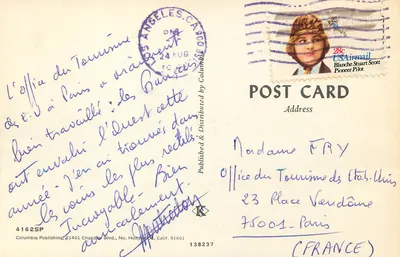 L'Office du Tourisme
des E.U à Paris a vraiment
bien travaillé : les Français
ont envahi l'Ouest cette
année. J'en ai trouvés dans
les coins les plus reculés.
Incroyable. Bien
amicalement.
4162SP
Columbia Publishing, 11401 Chandler Blvd., No. Hollywood, Calif. 91601
138237
Published & Distributed by Columbia
K
LOS ANGELES, CA 900
PM
24 AUG
28c
USAirmail
Blanche Stuart Scott
Pioneer Pilot
POST CARD
Address
Madame FRY
Office du Tourisme des Etats-Unis
23 Place Vendôme
75001 - Paris
(FRANCE)